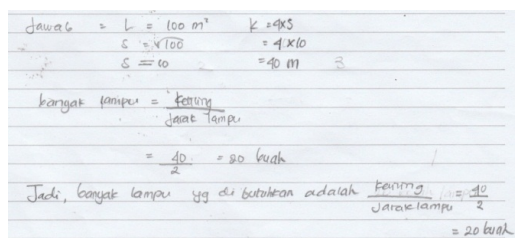 Jawab = L = 100 m² K = 4xS
S = √100 = 4 x 10
S = 10 = 40 m 3
banyak lampu = keliling / Jarak lampu
= 40 / 2 = 20 buah
Jadi, banyak lampu yg di butuhkan adalah keliling / Jarak lampu = 40 / 2
= 20 buah